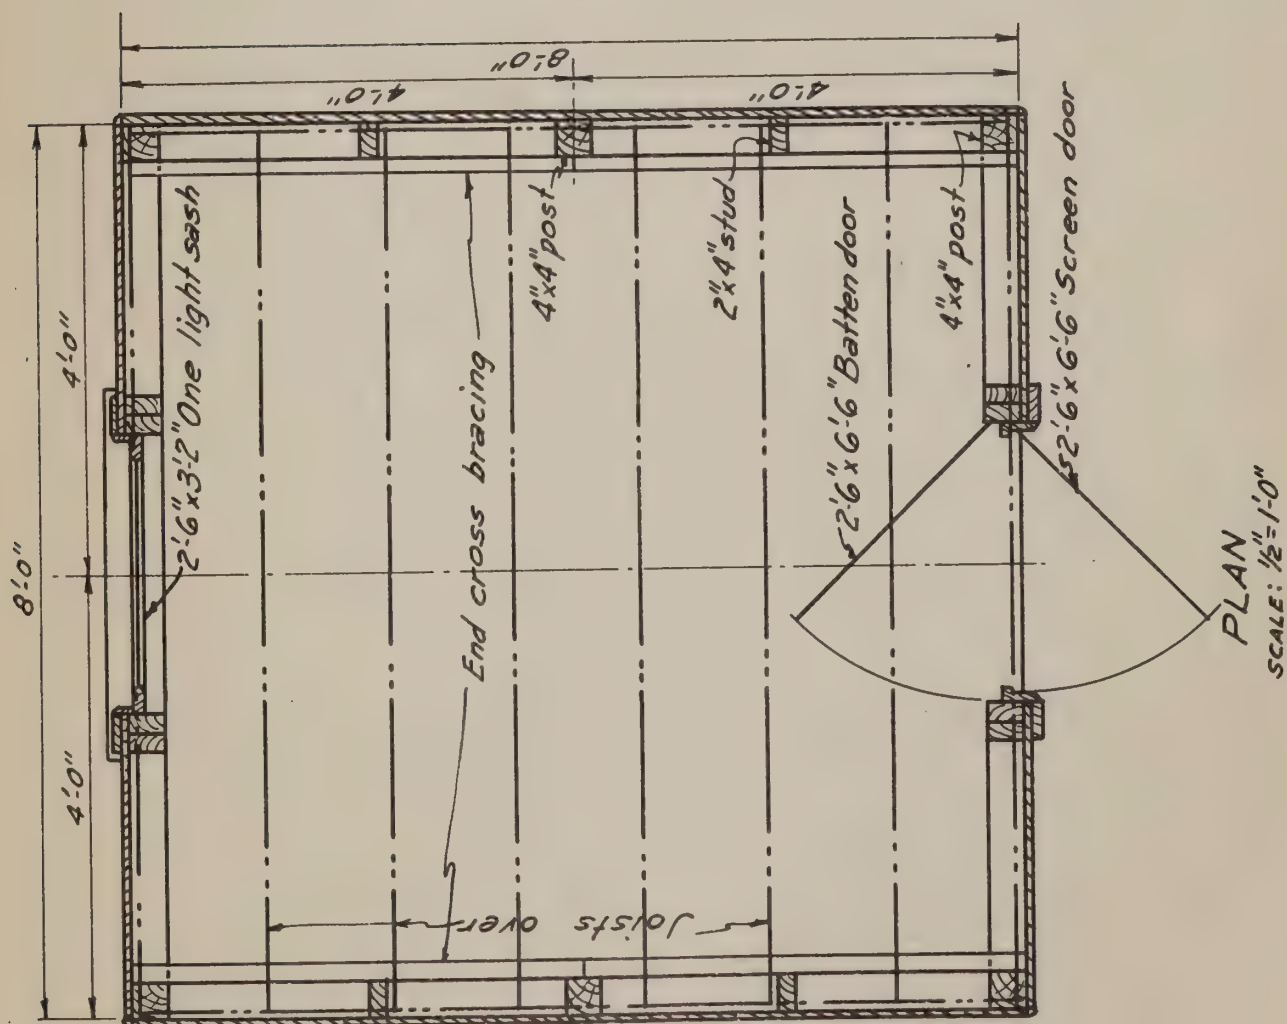 8'-0"
4'-0"
4'-0"
8'-0"
4'-0"
4'-0"
2'-6"x3'-2" One light sash
End cross bracing
4"x4" post
2"x4" stud
2'-6"x6'-6" Batten door
4"x4" post
2'-6"x6'-6" Screen door
Joists over
PLAN
SCALE: 1/2"=1'-0"